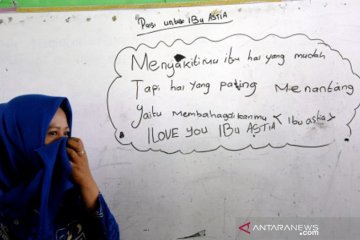 Puisi untuk IBU ASTIA
Menyakitimu ibu hal yang mudah
Tapi hal yang paling Menantang
Yaitu Membahagiakanmu < Ibu astia >
I LOVE YOU IBU ASTIA
ANTARANEWS
.com